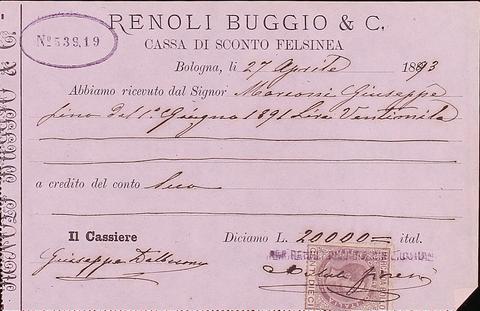 Nº 539,19
RENOLI BUGGIO & C.
CASSA DI SCONTO FELSINEA
Bologna, li 27 Aprile 1893
Abbiamo ricevuto dal Signor Marconi Giuseppe
fino dal 1º Giugno 1891 Lire Ventimila
a credito del conto Suo
Il Cassiere
Diciamo L. 20000= ital.
Giuseppe
CENT. DIECI